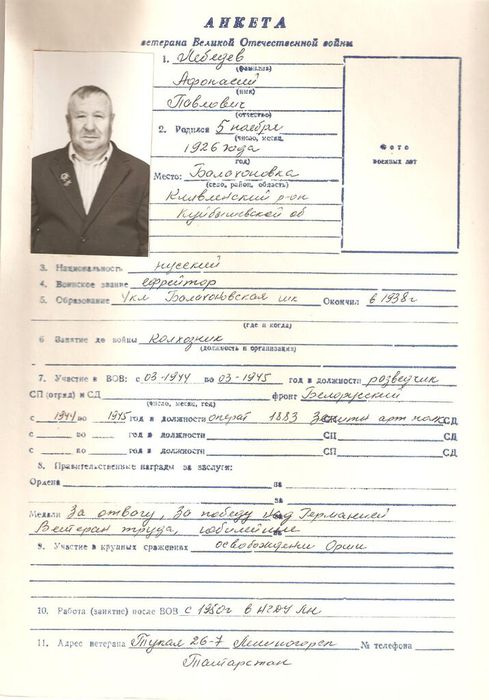 АНКЕТА
ветерана Великой Отечественной войны
1. Лебедев
(фамилия)
Афонасий
(имя)
Павлович
(отчество)
2. Родился 5 ноября
(число, месяц,
1926 года
год)
Место: Балахоновка
(село, район, область)
Клявленский р-он
Куйбышевской об
Фото
военных лет
3. Национальность русский
4. Воинское звание ефрейтор
5. Образование 4 кл Балахоновская шк Окончил в 1938 г
(где и когда)
6 Занятие до войны колхозник
(должность и организация)
7. Участие в ВОВ: с 03-1944 по 03-1945 год в должности разведчик
СП (отряд) и СД фронт Белорусский
(число, месяц, год)
с 1944 по 1945 год в должности 1883 Зенитн арт полк СД
с по год в должности СП СД
с по год в должности СП СД
8. Правительственные награды за заслуги:
Ордена за
за
Медали За отвагу, За победу над Германией
Ветеран труда, юбилейные
9. Участие в крупных сражениях освобождении Орши
10. Работа (занятие) после ВОВ с 1950г в
11. Адрес ветерана Тукая 26-7 Лениногорск № телефона
Татарстан